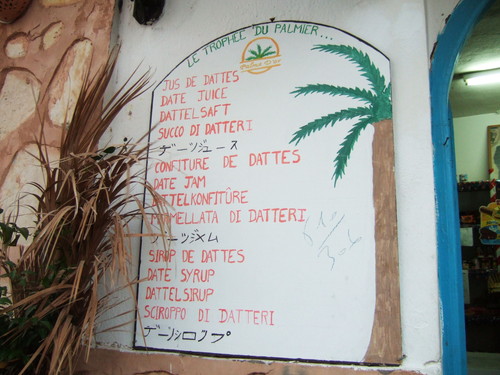 LE TROPHEE DU PALMIER...
JUS DE DATTES
DATE JUICE
DATTELSAFT
SUCCO DI DATTERI
デーツジュース
CONFITURE DE DATTES
DATE JAM
DATTELKONFITÛRE
MARMELLATA DI DATTERI
デーツジメム
SIROP DE DATTES
DATE SYRUP
DATTELSIRUP
SCIROPPO DI DATTERI
デーツシロップ